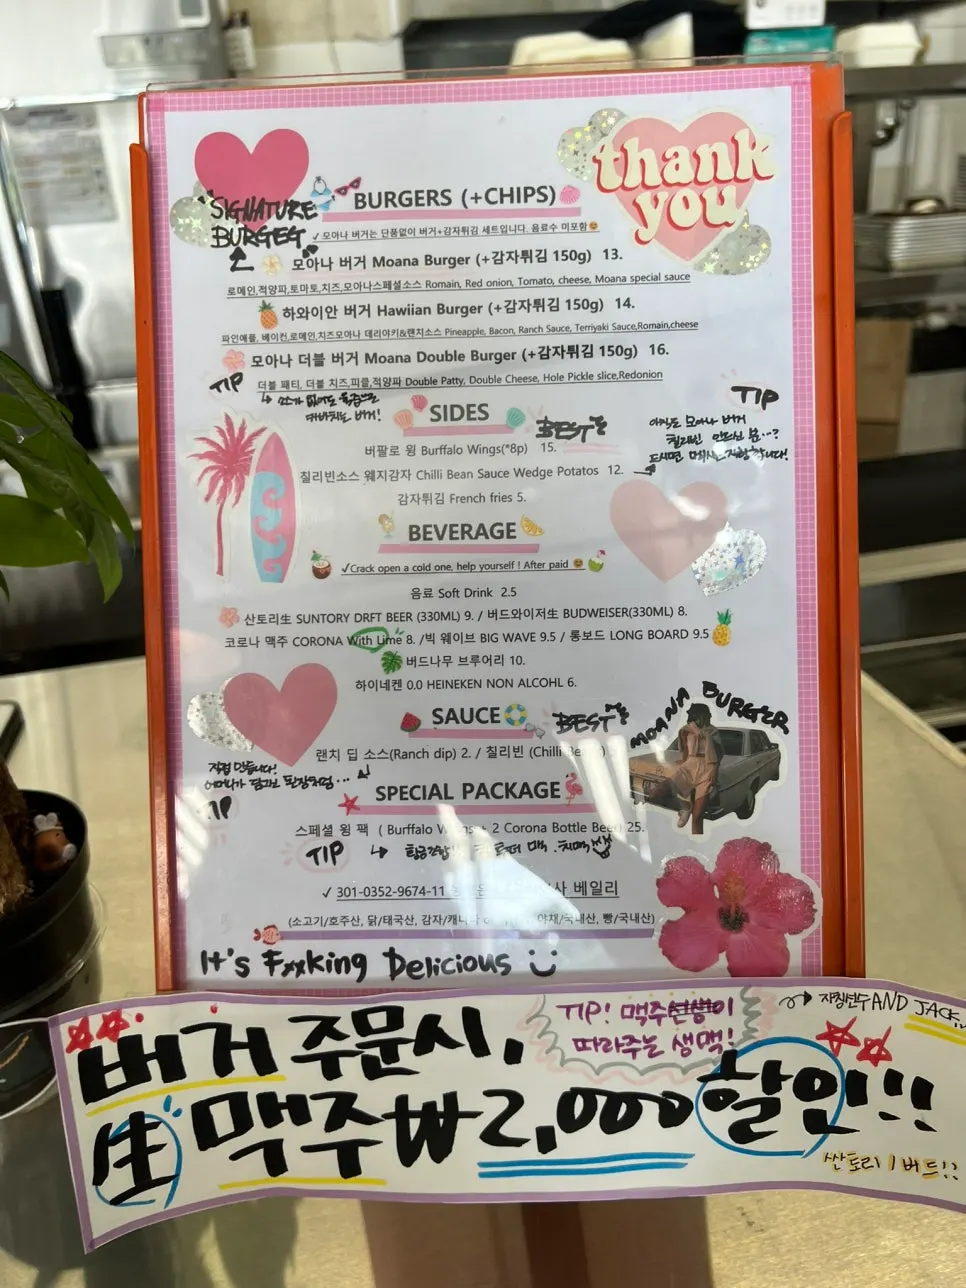 thank
you
SIGNATURE
BURGEG
BURGERS (+CHIPS)
✓ 모아나 버거는 단품없이 버거+감자튀김 세트입니다. 음료수 미포함
모아나 버거 Moana Burger (+감자튀김 150g) 13.
로메인,적양파,토마토,치즈,모아나스페셜소스 Romain, Red onion, Tomato, cheese, Moana special sauce
하와이안 버거 Hawiian Burger (+감자튀김 150g) 14.
파인애플, 베이컨,로메인,치즈모아나 데리야키&랜치소스 Pineapple, Bacon, Ranch Sauce, Terriyaki Sauce,Romain,cheese
모아나 더블 버거 Moana Double Burger (+감자튀김 150g) 16.
더블 패티, 더블 치즈,피클,적양파 Double Patty, Double Cheese, Hole Pickle slice,Redonion
TIP
소스가 없어도 육즙으로
버거!
TIP
아직도 모아나 버거
칠리빈 안드셔 본...?
드시면
SIDES
BEST
버팔로 윙 Burffalo Wings(*8p) 15.
칠리빈소스 웨지감자 Chilli Bean Sauce Wedge Potatos 12.
감자튀김 French fries 5.
BEVERAGE
✓Crack open a cold one, help yourself ! After paid
음료 Soft Drink 2.5
산토리生 SUNTORY DRFT BEER (330ML) 9. / 버드와이저生 BUDWEISER(330ML) 8.
코로나 맥주 CORONA With Lime 8. /빅 웨이브 BIG WAVE 9.5 / 롱보드 LONG BOARD 9.5
버드나무 브루어리 10.
하이네켄 0.0 HEINEKEN NON ALCOHL 6.
SAUCE
BEST
MOANA BURGER
랜치 딥 소스(Ranch dip) 2. / 칠리빈 (Chilli
직접 만듭니다!
어머니가 담그신 된장처럼...
TIP
SPECIAL PACKAGE
스페셜 윙 팩 ( Burffalo + 2 Corona Bottle Beer) 25.
TIP
✓ 301-0352-9674-11 베일리
(소고기/호주산, 닭/태국산, 감자/캐나다 야채/국내산, 빵/국내산)
It's Fxxking Delicious
버거 주문시,
TIP! 맥주선생이
따라주는 생맥!
AND JACK
生맥주 ₩2,000 할인!!
싼토리 / 버드!!